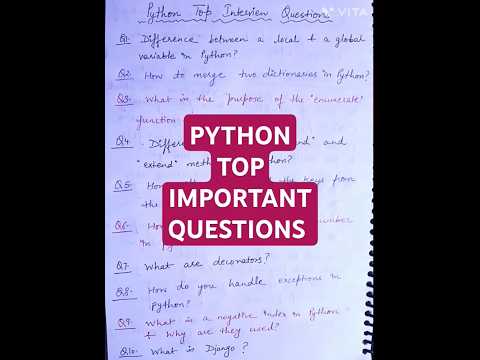 Python Top Interview Question
VITA
Q1. Difference between a local & a global
variable in Python?
Q2. How to merge two dictionaries in Python?
Q3. What in the purpose of the "enumerate"
function
Q4. and" and
"extend" meth
Q5. the keys from
the
Q6.
in
Q7. What are decorators?
Q8. How do you handle exceptions in
Python?
Q9. What is a negative index in Python
& Why are they used?
Q10. What is Django?
PYTHON
TOP
IMPORTANT
QUESTIONS